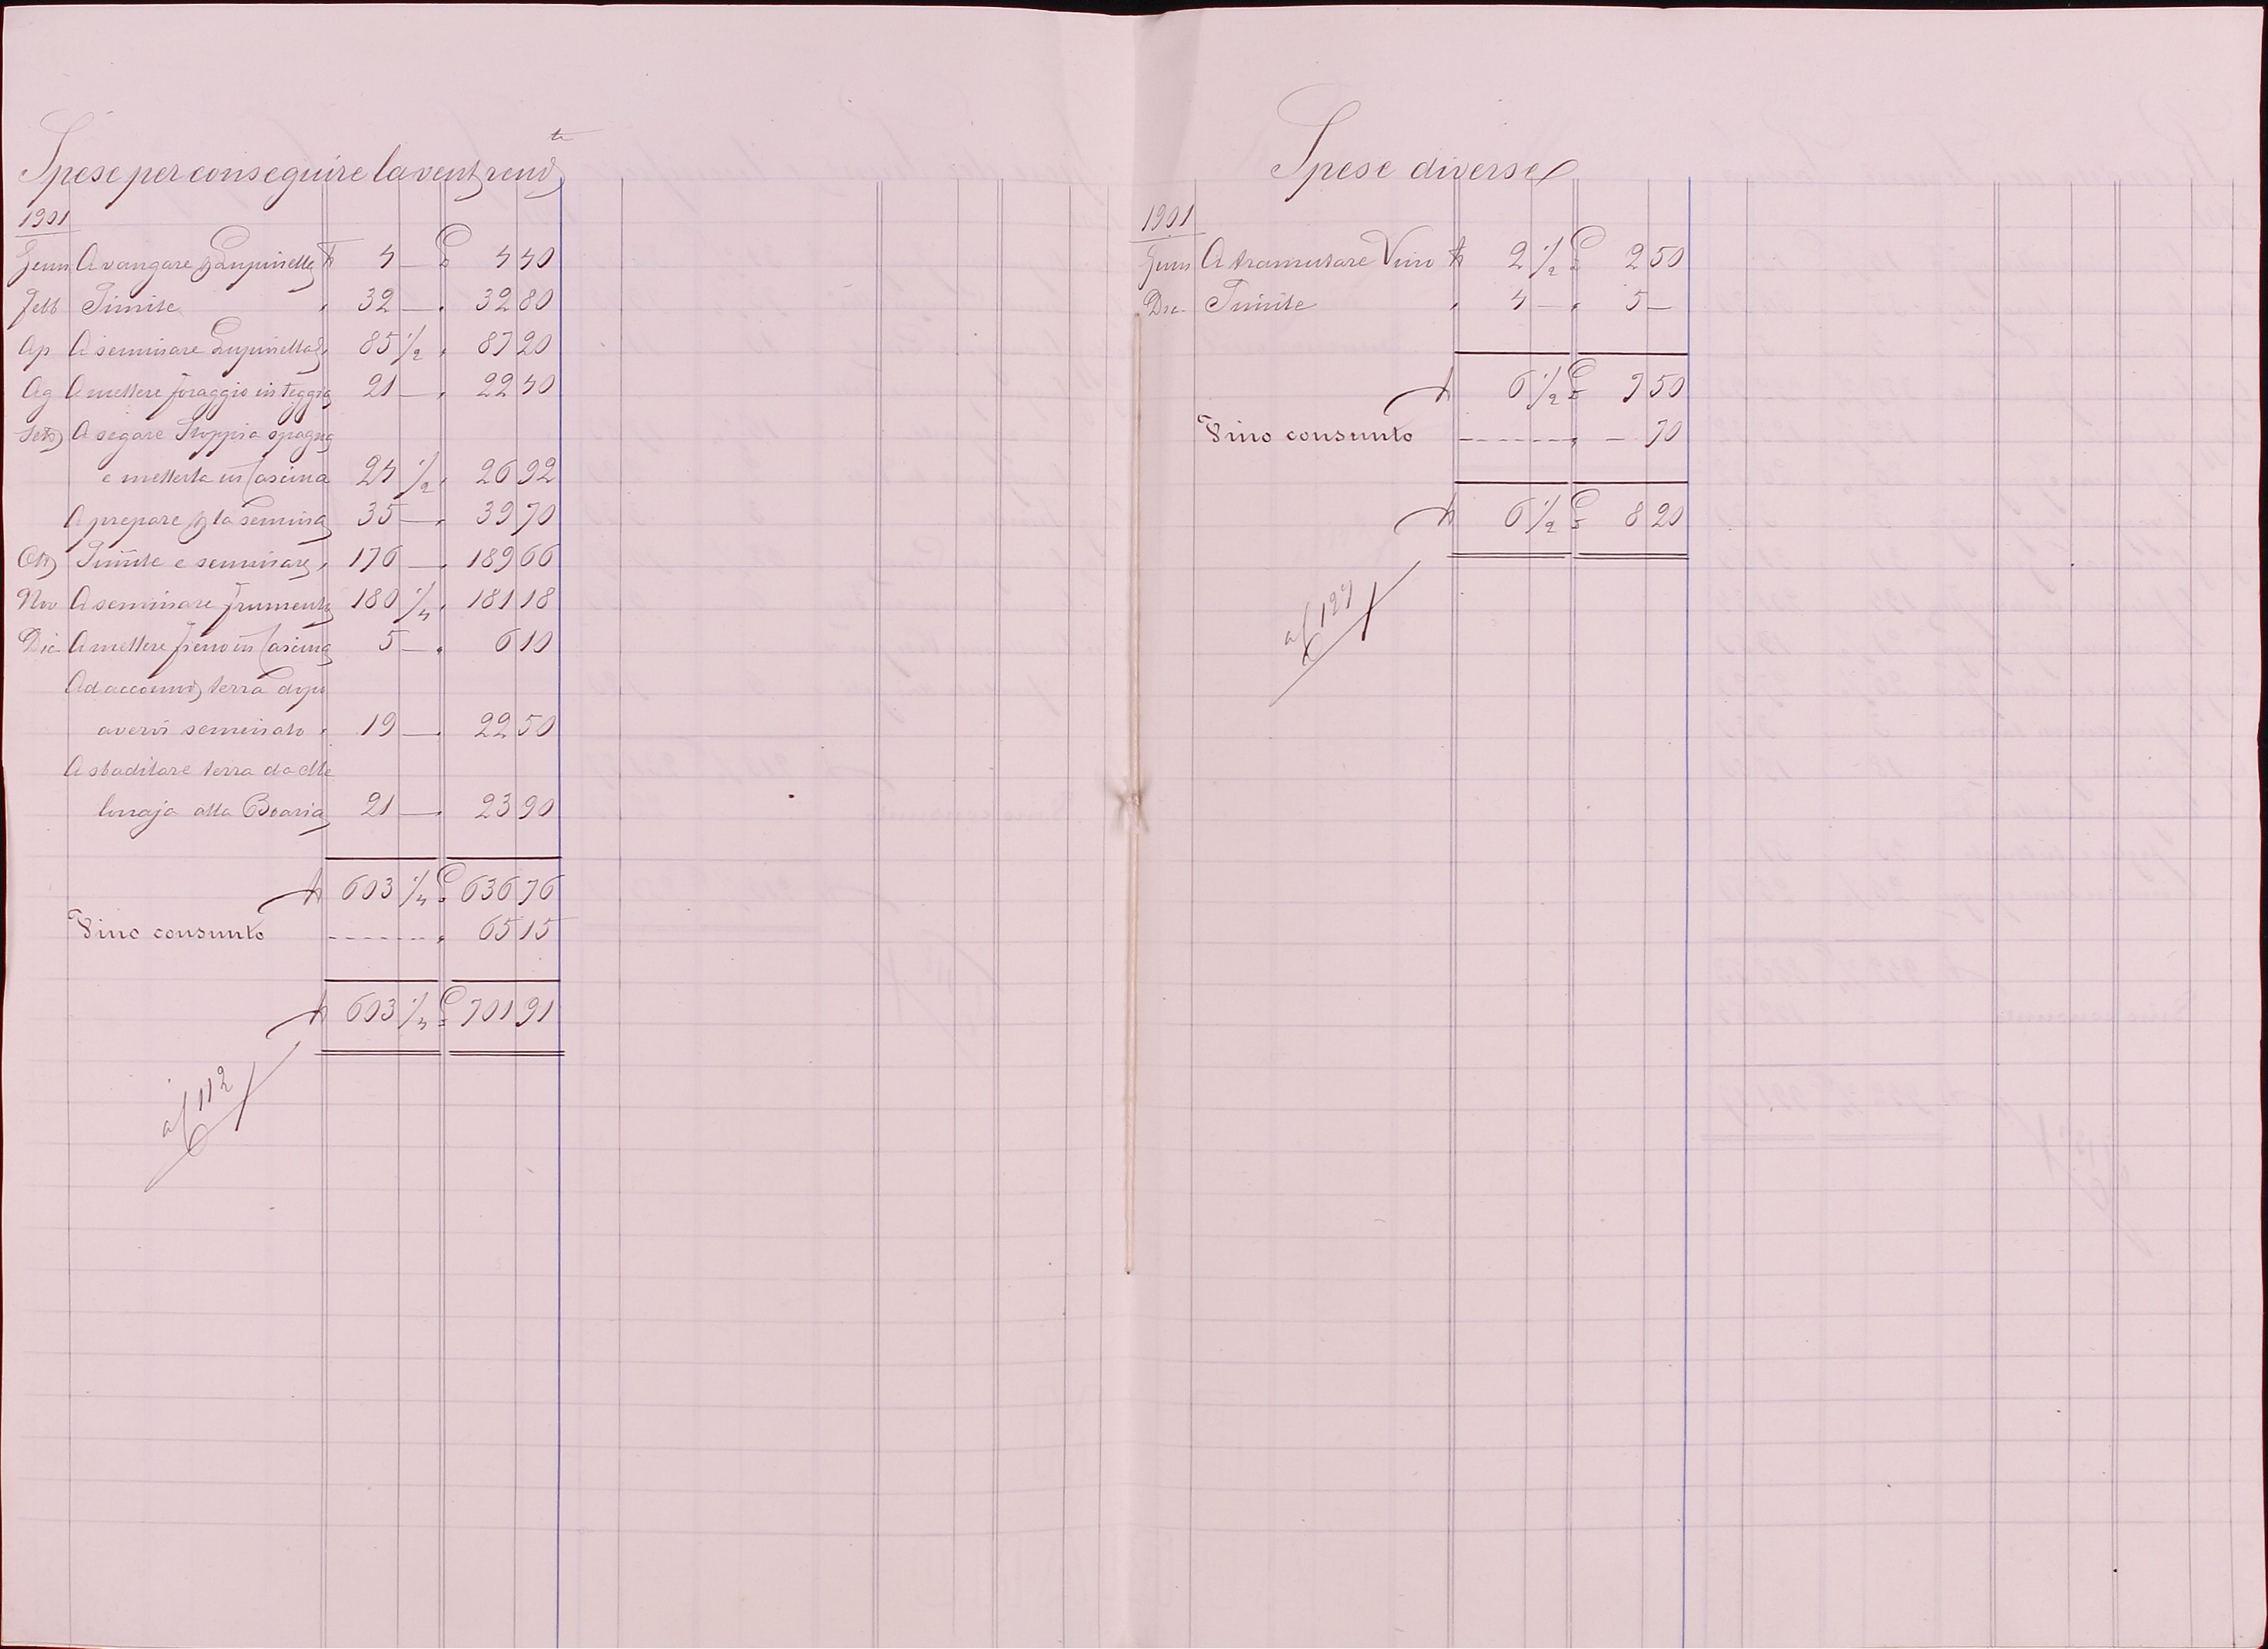 Spese per conseguire la vent rend.ta
1901
Genn A vangare p Lupinella h 4 — £ 4 40
Febb Simile " 32 — " 32 80
Ap A seminare Lupinella " 85 1/2 " 87 20
Ag A mettere foraggio in teggia 21 — " 22 40
Sett A segare Stoppia spagna
e metterla in Cascina 24 1/2 " 26 92
A prepare p la semina 35 — " 39 70
Ott Simile e seminare " 176 — " 189 66
Nov A seminare frumento 180 1/4 " 181 18
Dic A mettere fieno in Cascina 5 — " 6 10
Ad accomod terra dopo
avervi seminato " 19 — " 22 50
A sbadilare terra da Me
lonaja alla Boaria 21 — " 23 90
h 603 1/4 £ 636 76
Vino consunto " 65 15
h 603 1/4 £ 701 91
a f 112
Spese diverse
1901
Genn A tramutare Vino h 2 1/2 £ 2 50
Dic Simile " 4 — " 5 —
h 6 1/2 £ 7 50
Vino consunto " — 70
h 6 1/2 £ 8 20
a f 127